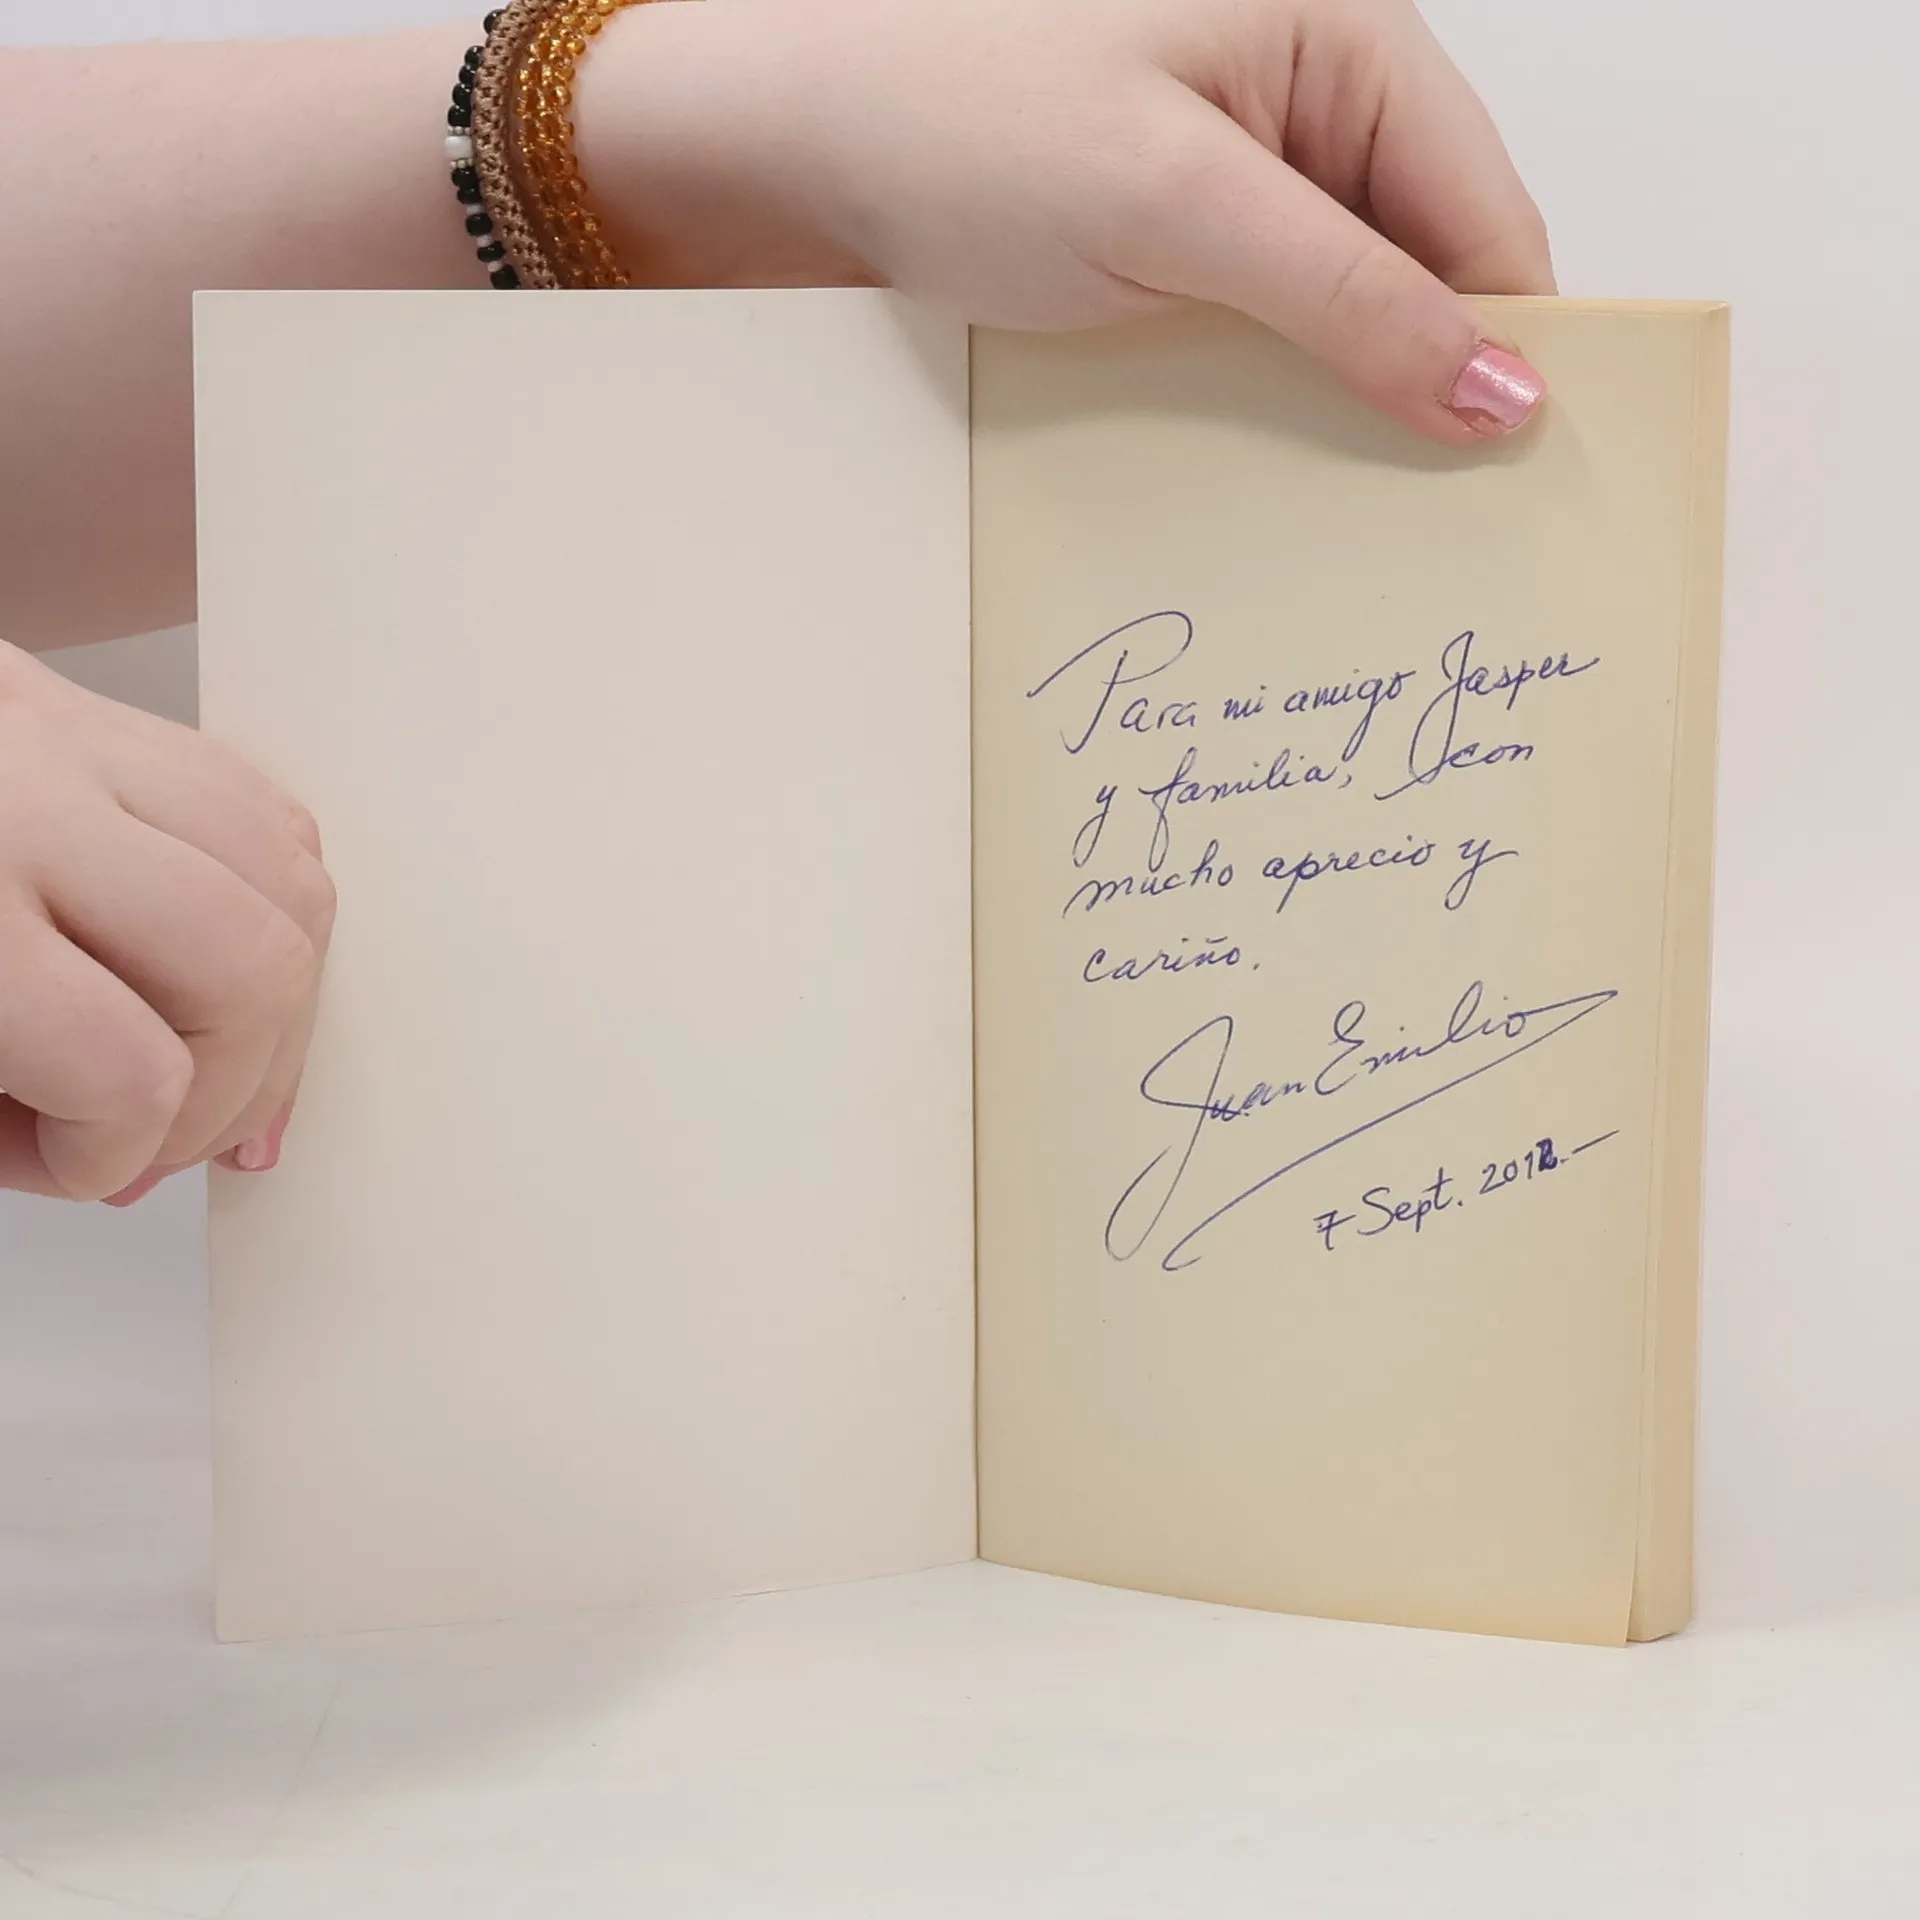 Para mi amigo Jasper
y familia, con
mucho aprecio y
cariño.
Juan Emilio
7 Sept. 2012.-